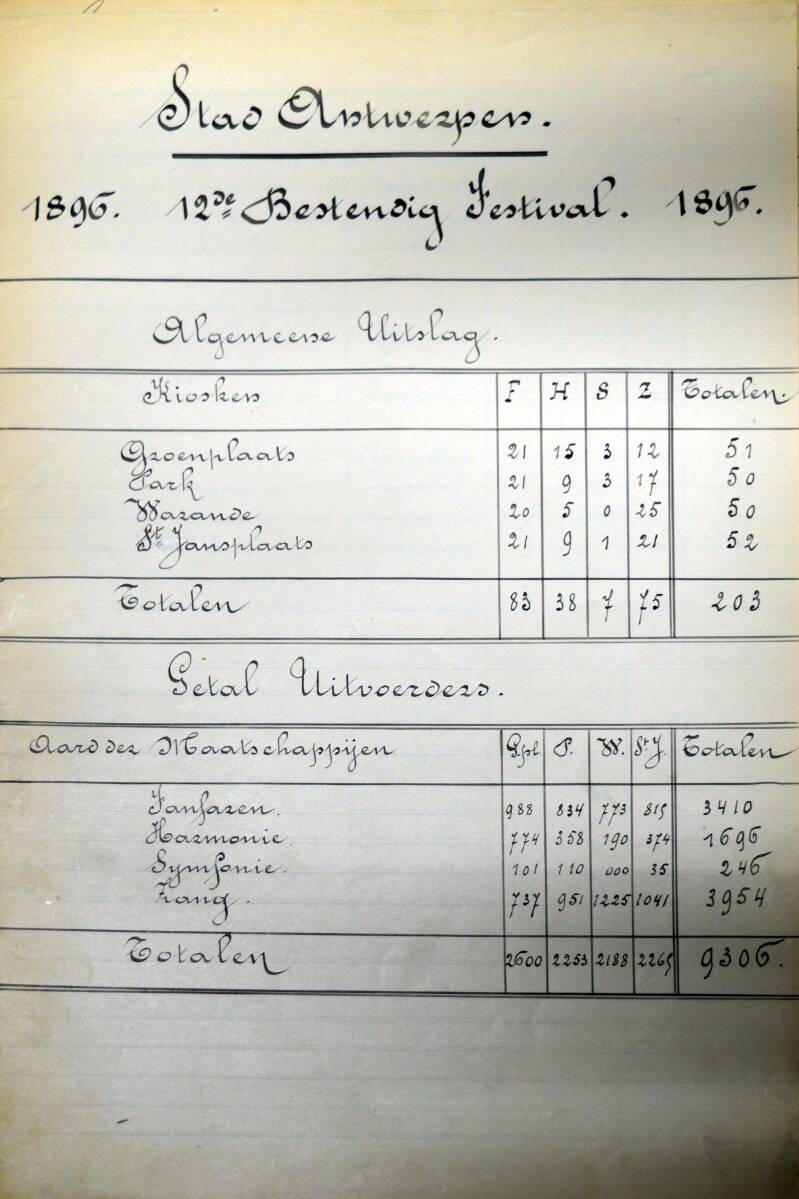 Stad Antwerpen.
1896. 12de Bestendig Festival. 1896.
Algemeene Uitslag.
Kiosken F H S Z Totalen.
Groenplaats 21 15 3 12 51
Park 21 9 3 17 50
Warande 20 5 0 25 50
St Jansplaats 21 9 1 21 52
Totalen 83 38 7 75 203
Getal Uitvoerders.
Aard der Maatschappijen G.pl. P. W. St J. Totalen
Fanfaren. 988 834 773 815 3410
Harmonie. 774 358 190 374 1696
Symfonie. 101 110 000 35 246
Zang. 737 951 1225 1041 3954
Totalen 2600 2253 2188 2265 9306.